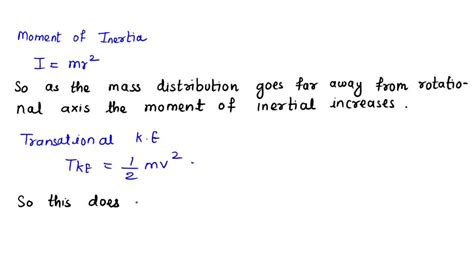 Moment of Inertia
I = mr²
So as the mass distribution goes far away from rotatio-
nal axis the moment of inertial increases.
Transational K.E
TKE = 1/2 mv².
So this does .